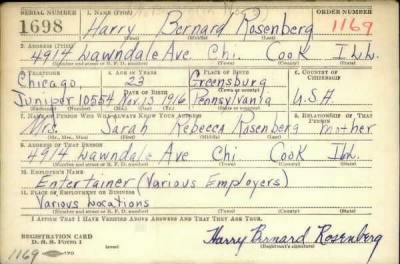 SERIAL NUMBER 1. NAME (Print) ORDER NUMBER
1698 Harry Bernard Rosenberg 1169
(First) (Middle) (Last)
2. ADDRESS (Print)
4914 Lawndale Ave. Chi. Cook ILL.
(Number and street or R. F. D. number) (Town) (County) (State)
3. TELEPHONE 4. AGE IN YEARS 5. PLACE OF BIRTH 6. COUNTRY OF CITIZENSHIP
Chicago, 23 Greensburg
DATE OF BIRTH (Town or county)
Juniper 10554 Nov. 13 1916 Pennsylvania U.S.A.
(Exchange) (Number) (Mo.) (Day) (Yr.) (State or country)
7. NAME OF PERSON WHO WILL ALWAYS KNOW YOUR ADDRESS 8. RELATIONSHIP OF THAT PERSON
Mrs. Sarah Rebecca Rosenberg mother
(Mr., Mrs., Miss) (First) (Middle) (Last)
9. ADDRESS OF THAT PERSON
4914 Lawndale Ave Chi Cook ILL.
(Number and street or R. F. D. number) (Town) (County) (State)
10. EMPLOYER'S NAME
Entertainer (Various Employers)
11. PLACE OF EMPLOYMENT OR BUSINESS
Various Locations
(Number and street or R. F. D. number) (Town) (County) (State)
I AFFIRM THAT I HAVE VERIFIED ABOVE ANSWERS AND THAT THEY ARE TRUE.
REGISTRATION CARD
D. S. S. FORM 1 Harry Bernard Rosenberg
1169 (Registrant's signature)